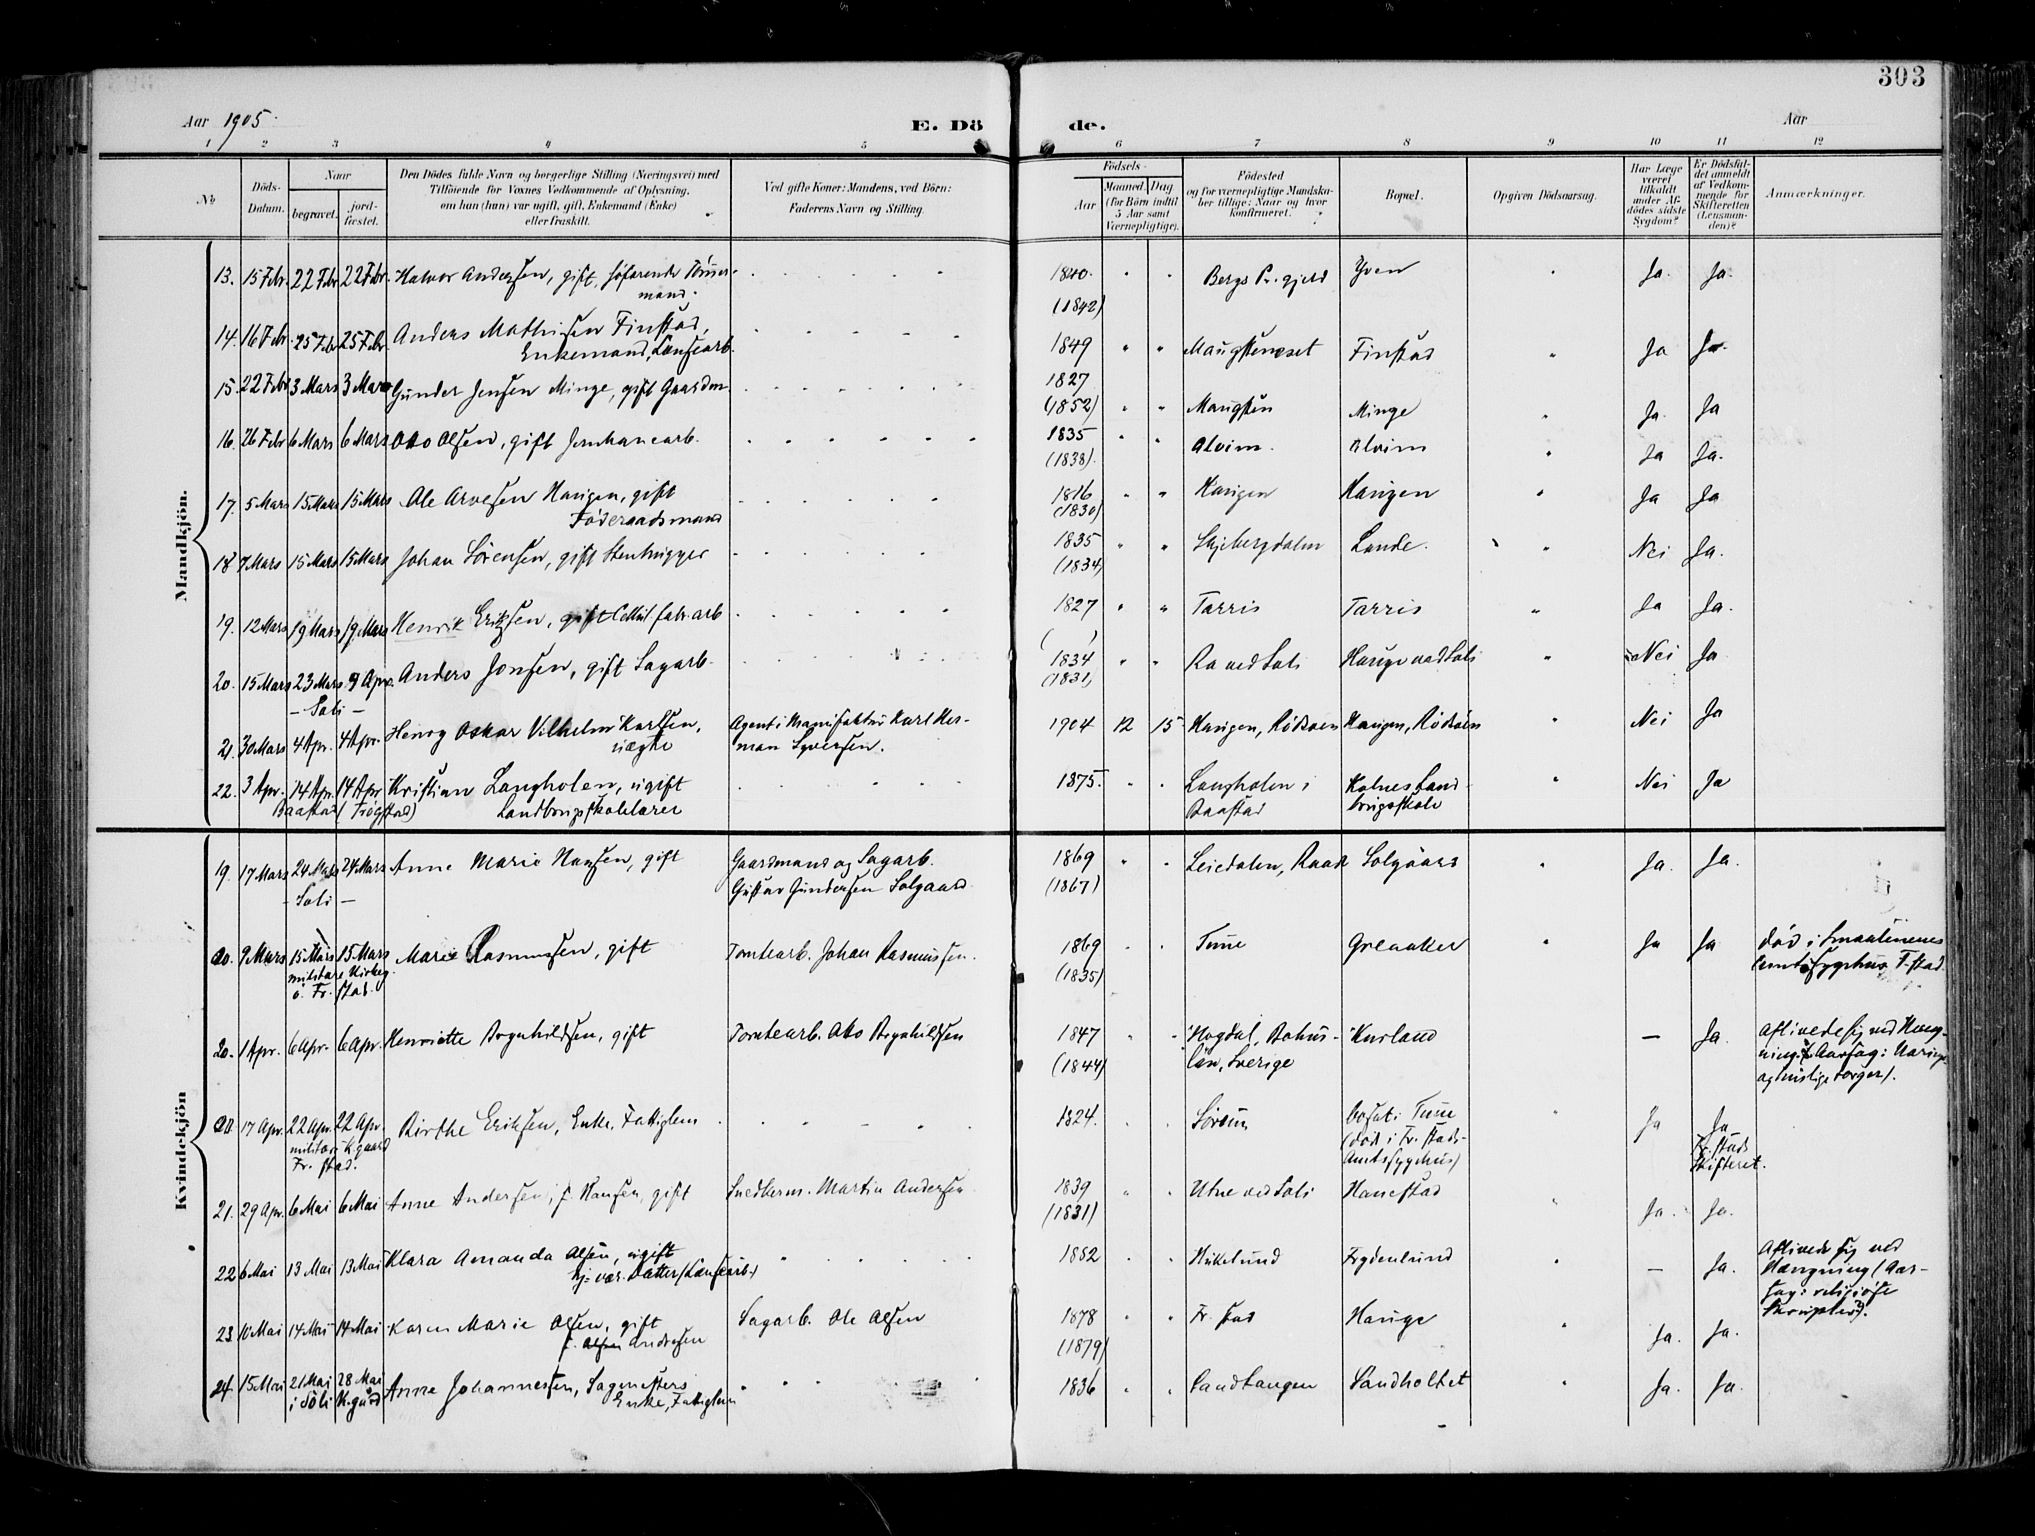 303
Aar 1905.
E. Dö de.
Aar
1 2 3 4 5 6 7 8 9 10 11 12
No
Döds-Datum.
Naar
begravet.
jordfæstet.
Den Dödes fulde Navn og borgerlige Stilling (Næringsvei) med
Tilföiende for Voxnes Vedkommende af Oplysning,
om han (hun) var ugift, gift, Enkemand (Enke)
eller fraskilt.
Ved gifte Koner: Mandens, ved Börn:
Faderens Navn og Stilling.
Födsels-
Aar
Maaned. Dag
(for Börn indtil
5 Aar samt
Værnepligtige).
Födested
og for værnepligtige Mandska-
ber tillige: Naar og hvor
konfirmeret.
Bopæl.
Opgiven Dödsaarsag.
Har Læge
været
tilkaldt
under Af-
dödes sidste
Sygdom?
Er Dödsfal-
det anmeldt
af Vedkom-
mende for
Skifteretten
(Lensman-
den)?
Anmærkninger.
Mandkjön.
13. 15 Febr. 22 Febr 22 Febr. Halvor Andersen, gift, söfarende Tömmer- 1840. Bergs Pr.gjeld Yven Ja. Ja.
mand. (1842)
14. 16 Febr. 25 Febr 25 Febr. Anders Mathisen Finstad, 1849 Finstad Ja Ja.
Enkemand,
15. 22 Febr 3 Mars 3 Mars Gunder Jensen Minge, gift Gaardm. 1827 (1852) Maugsten Minge Ja. Ja
16. 26 Febr 6 Mars 6 Mars Otto Olsen, gift 1835 Alvim. Alvim Ja Ja.
(1838).
17. 5 Mars 15 Mars 15 Mars Ole Arvesen Haugen, gift 1816 Haugen Haugen Ja Ja
Föderaadsmand (1830)
18 7 Mars 15 Mars 15 Mars Johan Sörensen, gift Stenhugger 1835 Skjebergdalen Lande. Nei Ja.
(1834)
19. 12 Mars 19 Mars 19 Mars Henrik Eriksen, gift Cellul. fabr. arb 1827 Tarris Tarris Ja Ja.
( )
20. 15 Mars 23 Mars 9 Apr. Anders Jonsen, gift Sagarb. 1834 Ra ved Soli Hauge ved Soli Nei Ja
- Soli - (1831)
21. 30 Mars 4 Apr. 4 Apr. Henry Oskar Vilhelm Karlsen, Agent i Manufaktur Karl Her- 1904 12 15 Haugen, Rödsøen Haugen, Rödsøen Nei Ja
uægte man Syversen.
22. 3 Apr. 14 Apr. 14 Apr Kristian Langholen, ugift 1875. Langholen i Kalnes Land- Nei Ja
Baastad (Trögstad) Landbrugsskolelærer Baastad brugsskole
Kvindekjön
19. 17 Mars 24 Mars 24 Mars Anne Marie Hansen, gift Gaardmand og Sagarb. 1869 Leiedalen, Raade Solgaard Ja. Ja.
- Soli - Gustav Gundersen Solgaard (1867)
20. 9 Mars 15 Mars 15 Mars Marie Rasmussen, gift Tomtearb. Johan Rasmussen. 1869 Tune Greaaker Ja Ja död i Smaalenenes
militære Kirkeg. (1835) Amtssygehus F-stad.
i Fr. stad.
20. 1 Apr. 6 Apr. 6 Apr. Henriette Bryuhildsen, gift Tomtearb. Otto Brynhildsen 1847 Hogdal, Bohus- Kurland — Ja. Aflivede sig ved Hæng-
(1844) län, Sverige ning. (Aarsag: Næring-
og huslige sorger).
20. 17 Apr. 22 Apr. 22 Apr. Birthe Eriksen, Enke, Fattiglem 1824. Sörum bosat i Tune Ja Ja
militær K.gaard (död i Fr. stads- Fr. stads
Fr. stad. Amtssygehus) Skifteret.
21. 29 Apr. 6 Mai 6 Mai Anne Andersen, f. Hansen, gift Snedkerm. Martin Andersen 1839 Utne ved Soli Hanestad Ja. Ja.
(1831)
22 6 Mai 13 Mai 13 Mai Klara Amanda Olsen, ugift 1882 Frydenlund — Ja. Aflivede sig ved
hj.vær. Datter Hængning (Aar-
sag: religiöse
Skrupler).
23 10 Mai 14 Mai 14 Mai Karen Marie Olsen, gift Sagarb. Ole Olsen 1878 Fr. stad Hauge Ja. Ja.
f. Andresen (1879)
24. 15 Mai 21 Mai 28 Mai Anne Johannessen, Sagmesters 1836 Sandtangen Sandholtet Ja. Ja.
i Soli K.gård Enke, Fattiglem